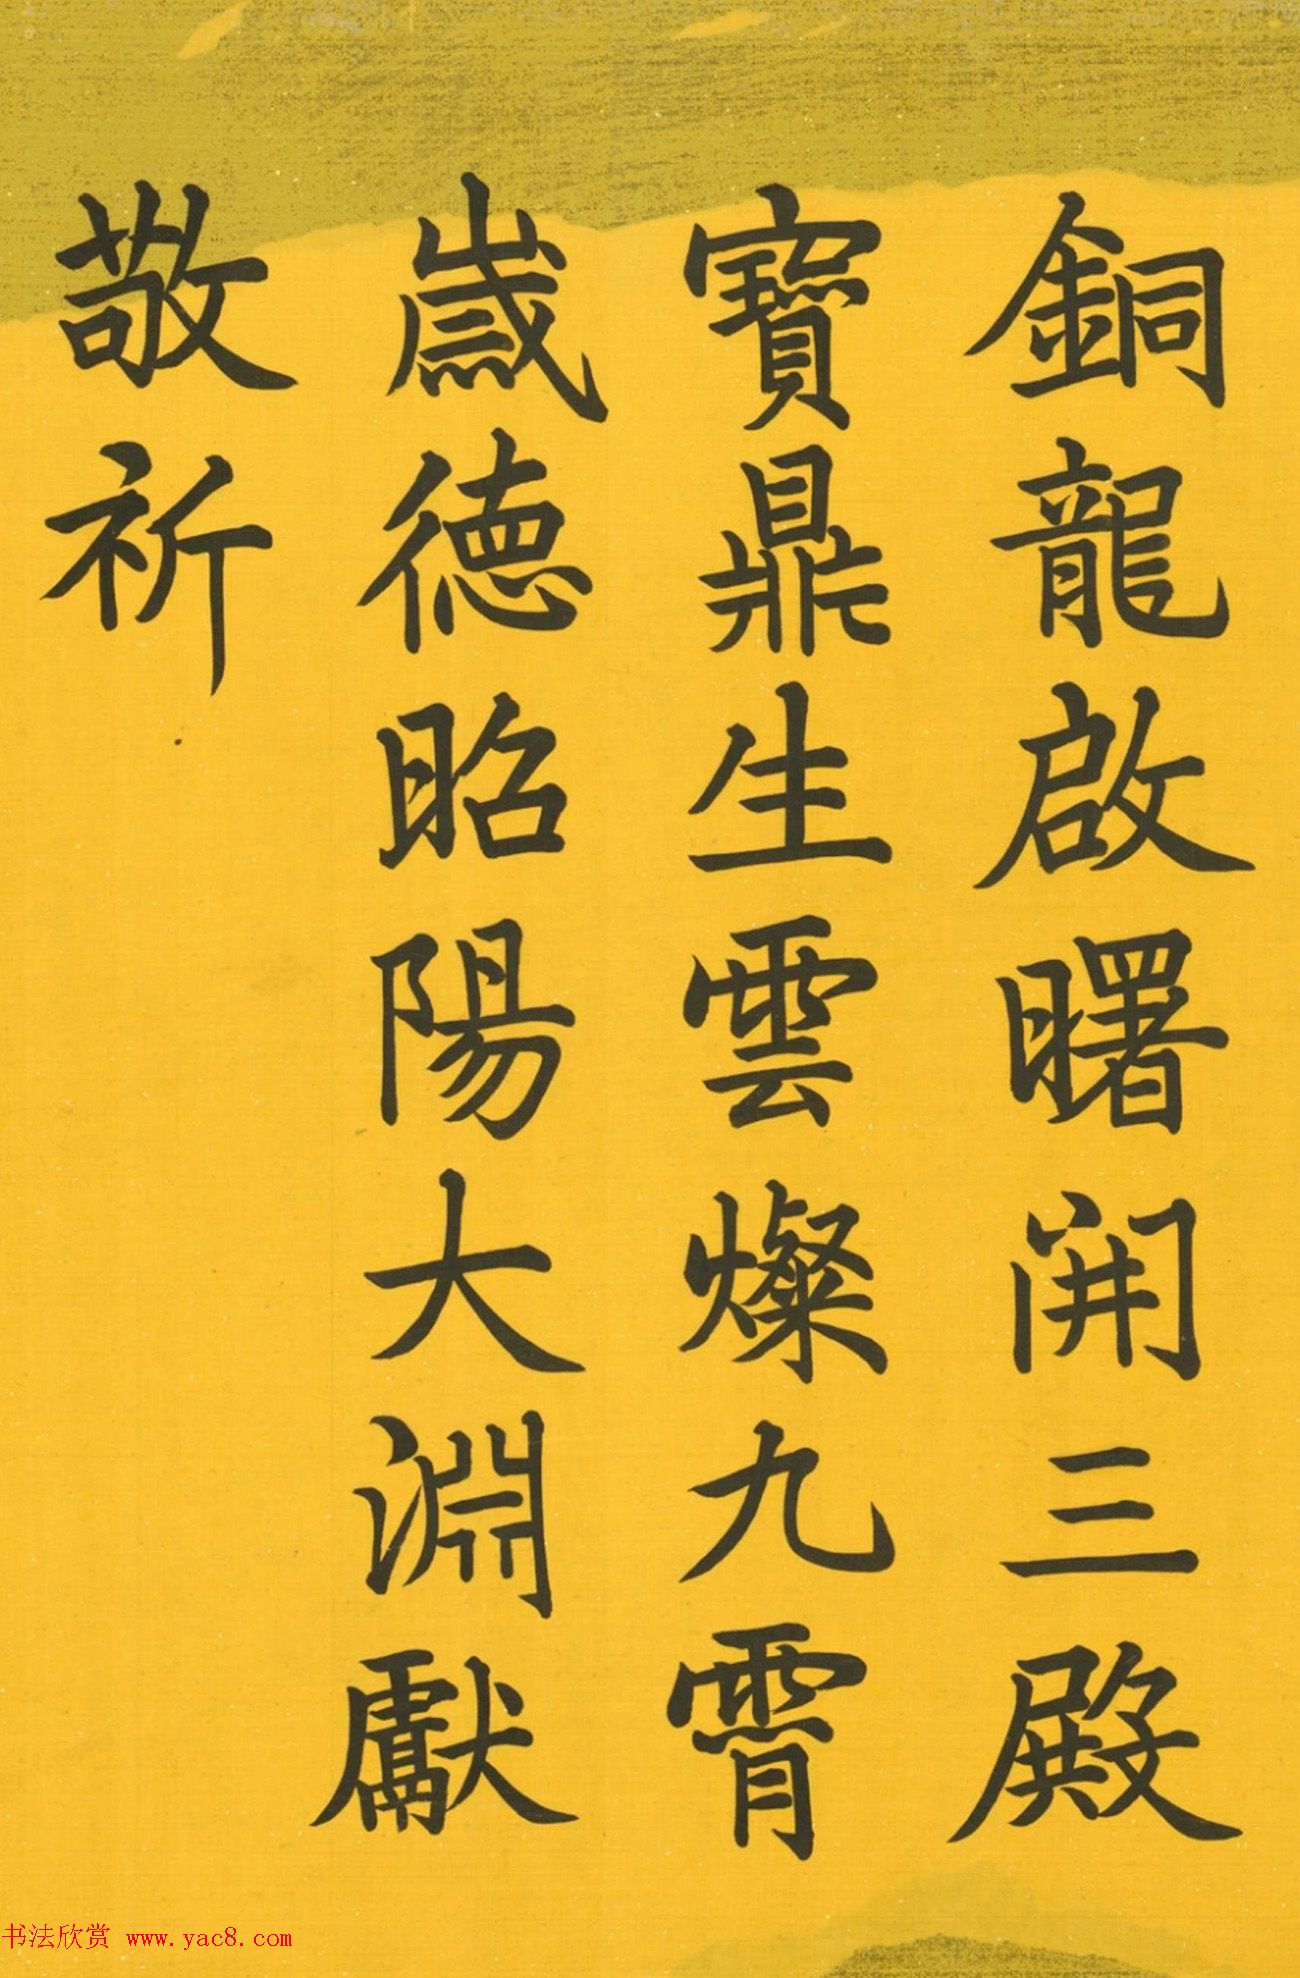 銅龍啟曙開三殿
寶鼎生雲燦九霄
歲德昭陽大淵獻
敬祈
书法欣赏 www.yac8.com